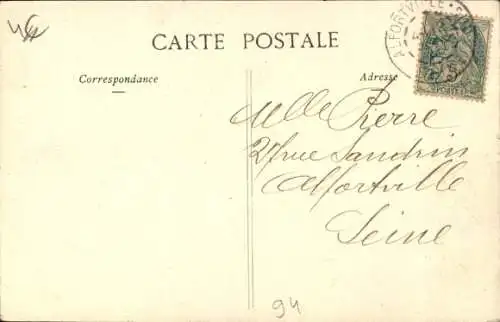 CARTE POSTALE
Correspondance
Adresse
ALFORTVILLE
Melle Pierre
27 rue Sandrin
Alfortville
Seine
94